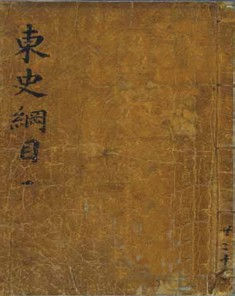 東史綱目 一